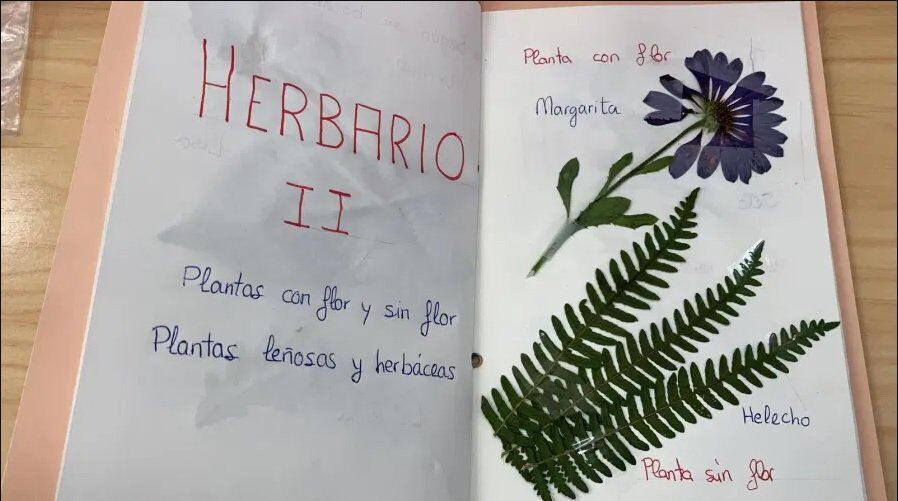 HERBARIO
II
Plantas con flor y sin flor
Plantas leñosas y herbáceas
Planta con flor
Margarita
Helecho
Planta sin flor